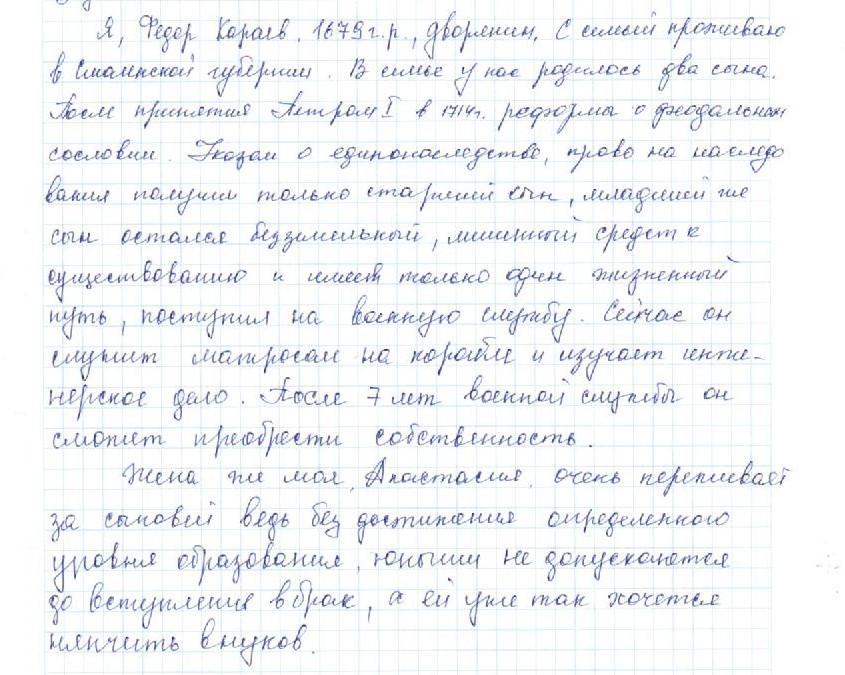 Я, Фёдор Караев. 1679 г.р., дворянин. С семьей проживаю
в Смоленской губернии. В семье у нас родилось два сына.
После принятия Петром I в 1714г. реформы о феодальном
сословии. Указом о единонаследстве, право на наследо
вания получил только старший сын, младший же
сын остался безземельный, лишенный средст к
существованию и имеет только один жизненный
путь, поступил на военную службу. Сейчас он
служит матросом на корабле и изучает инже-
нерское дело. После 7 лет военной службы он
сможет преобрести собственность.
Жена же моя, Анастасия, очень переживает
за сыновей ведь без достижения определенного
уровня образования, юноши не допускаются
до вступления в брак, а ей уже так хочется
нянчить внуков.